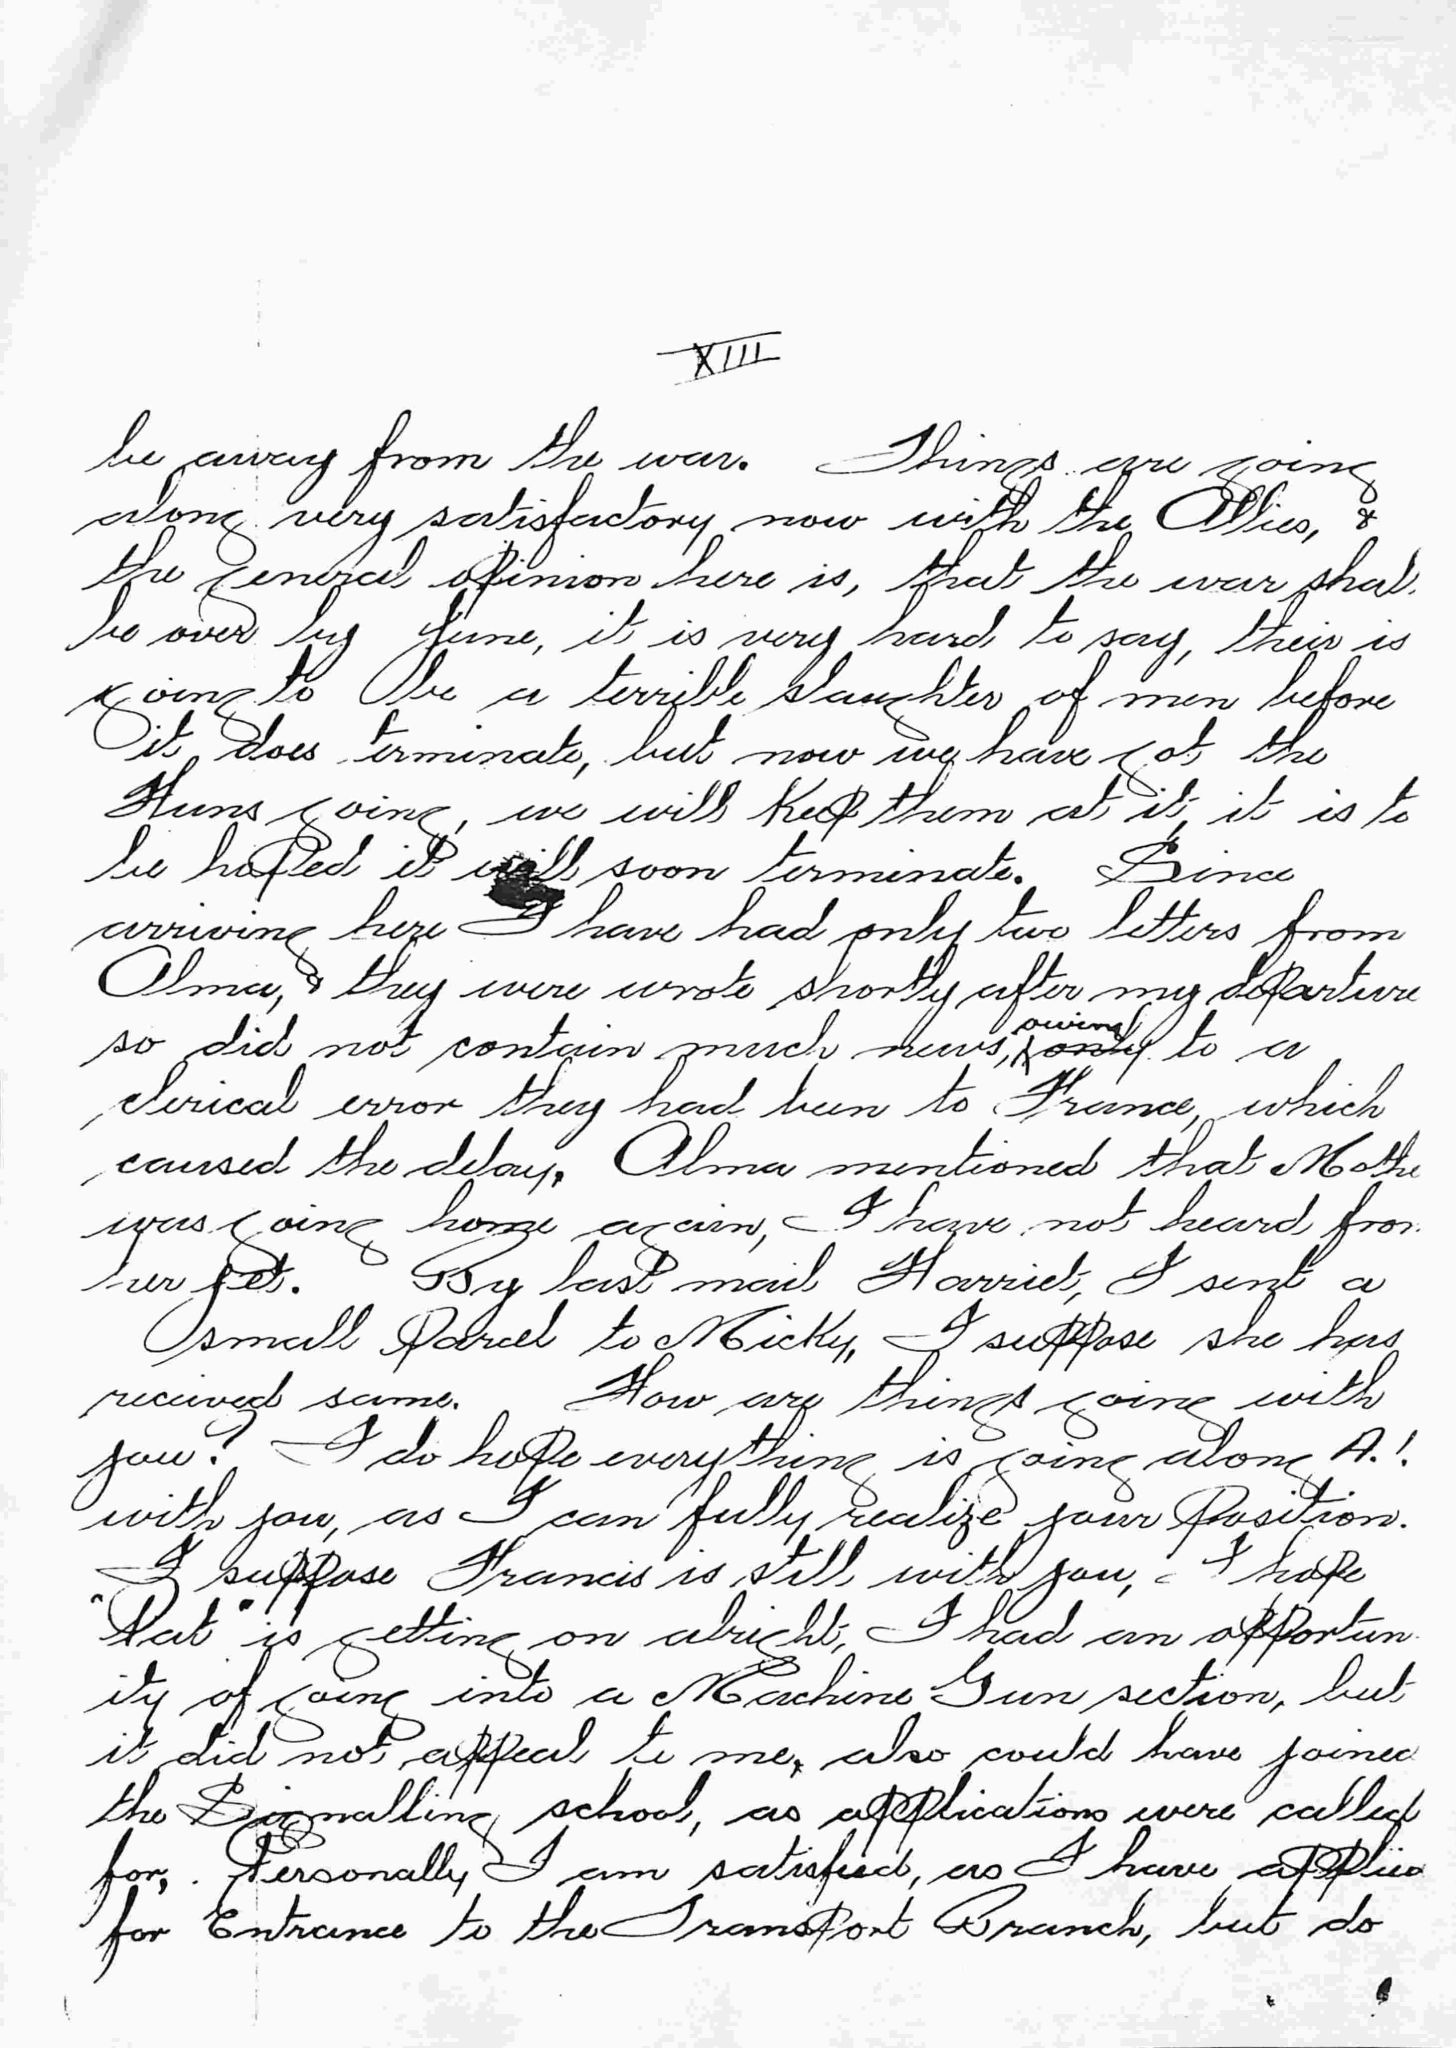 XIII
be away from the war. Things are going
along very satisfactory now with the Allies, &
the general opinion here is, that the war shal
be over by June, it is very hard to say, their is
going to be a terrible slaughter of men before
it does terminate, but now we have got the
Huns going, we will keep them at it, it is to
be hoped it will soon terminate. Since
arriving here I have had only two letters from
Alma, & they were wrote shortly after my departure
so did not contain much news, owing only to a
clerical error they had been to France, which
caused the delay. Alma mentioned that Mothe
was going home again, I have not heard from
her yet. By last mail Harriet, I sent a
small parcel to Micky, I suppose she has
received same. How are things going with
you? I do hope everything is going along A.1.
with you, as I can fully realize your position.
I suppose Francis is still with you, I hope
"Pat" is getting on alright, I had an opportun
ity of going into a Machine Gun section, but
it did not appeal to me, also could have joined
the Signalling school, as applications were called
for, . Personally I am satisfied, as I have applied
for Entrance to the Transport Branch, but do